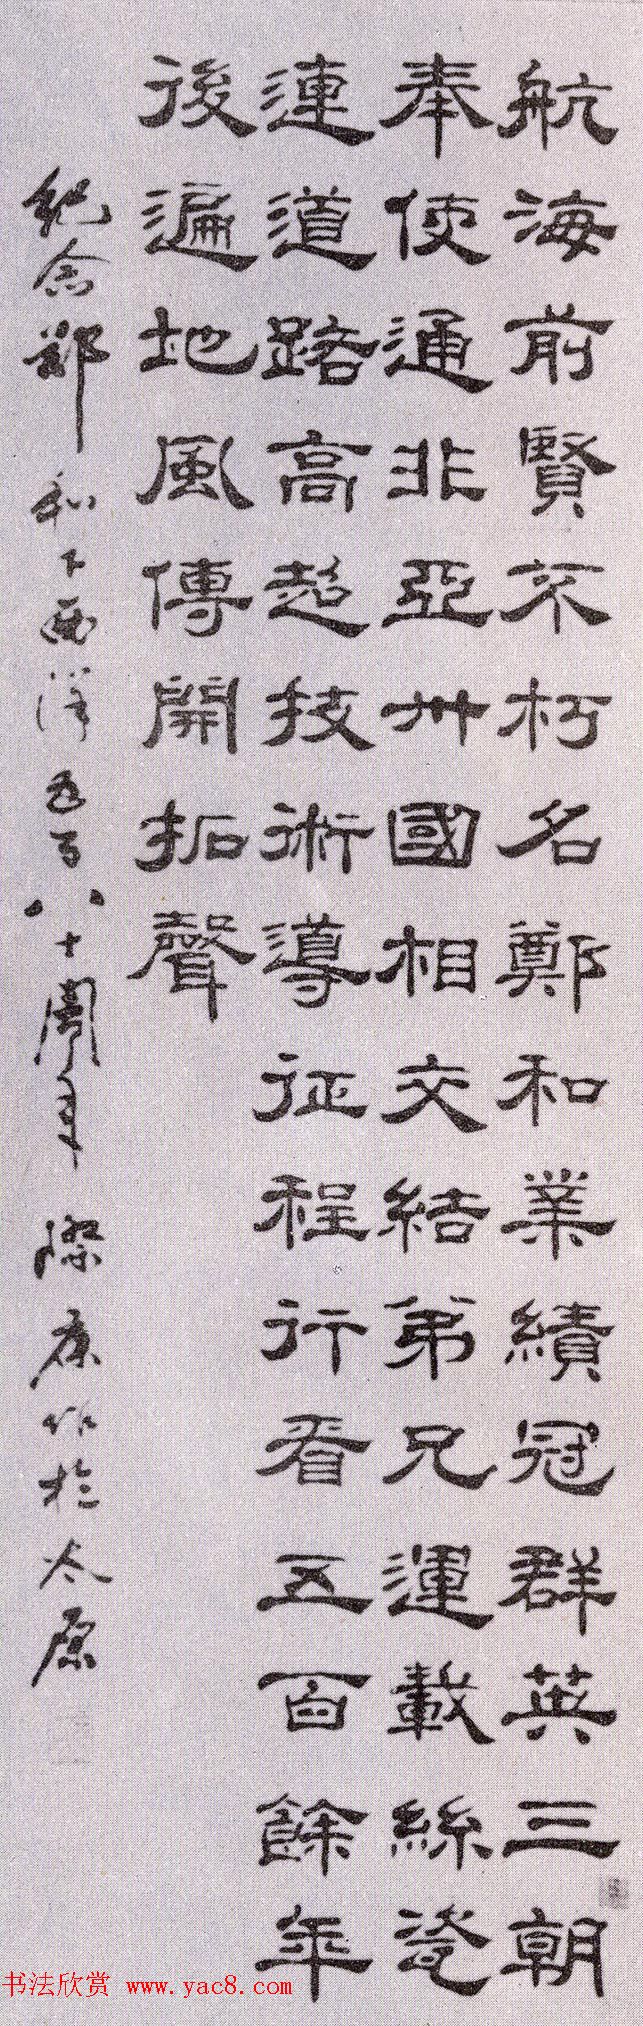 航海前賢不朽名鄭和業績冠群英三朝
奉使通非亞卅國相交結弟兄運載絲瓷
連道路高超技術導征程行看五百餘年
後遍地風傳開拓聲
紀念鄭和下西洋五百八十周年 作於太原
书法欣赏 www.yac8.com